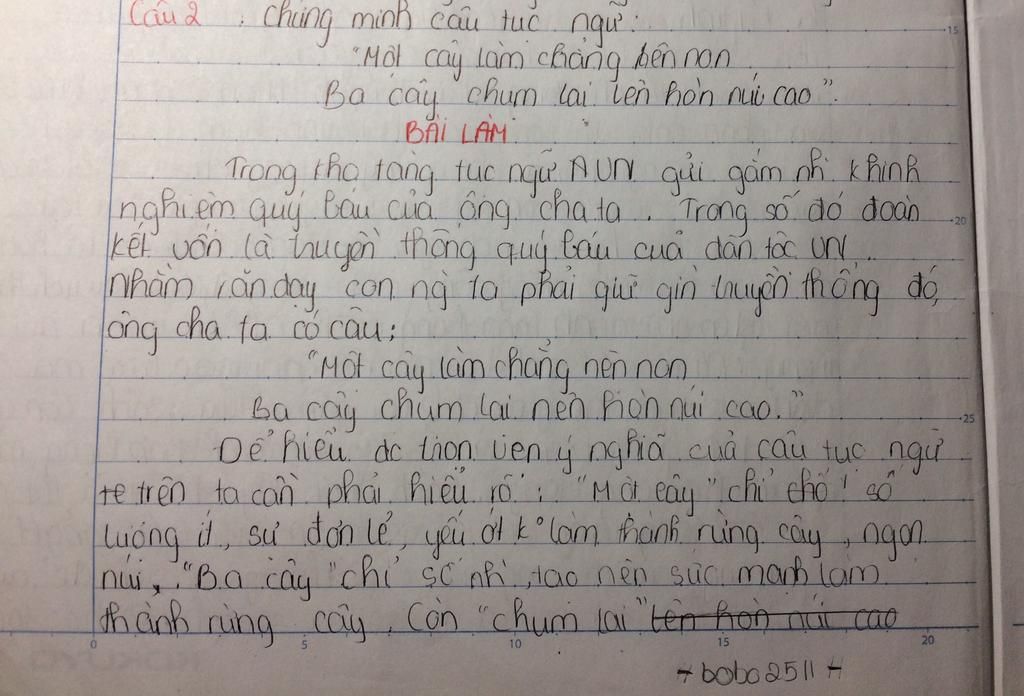 Câu 2 : chứng minh câu tục ngữ:
"Một cây làm chẳng nên non
Ba cây chụm lại lên hòn núi cao".
BÀI LÀM
Trong kho tàng tục ngữ VN gửi gắm nh` khinh
nghiệm quý báu của ông cha ta. Trong số đó đoàn
kết vốn là truyền thống quý báu của dân tộc VN.
Nhằm răn dạy con ng` ta phải giữ gìn truyền thống đó,
ông cha ta có câu:
"Một cây làm chẳng nên non
Ba cây chụm lại nên hòn núi cao."
Để hiểu đc trọn vẹn ý nghĩa của câu tục ngữ
trên ta cần phải hiểu rõ: "Một cây" chỉ cho số
lượng ít, sự đơn lẻ, yếu ớt k° làm thành rừng cây, ngọn
núi, "Ba cây" chỉ số nh`, tạo nên sức mạnh làm
thành rừng cây. Còn "chụm lại" lên hòn núi cao
0 5 10 15 20
+ bobo2511 +
15
20
25
KOKUYO